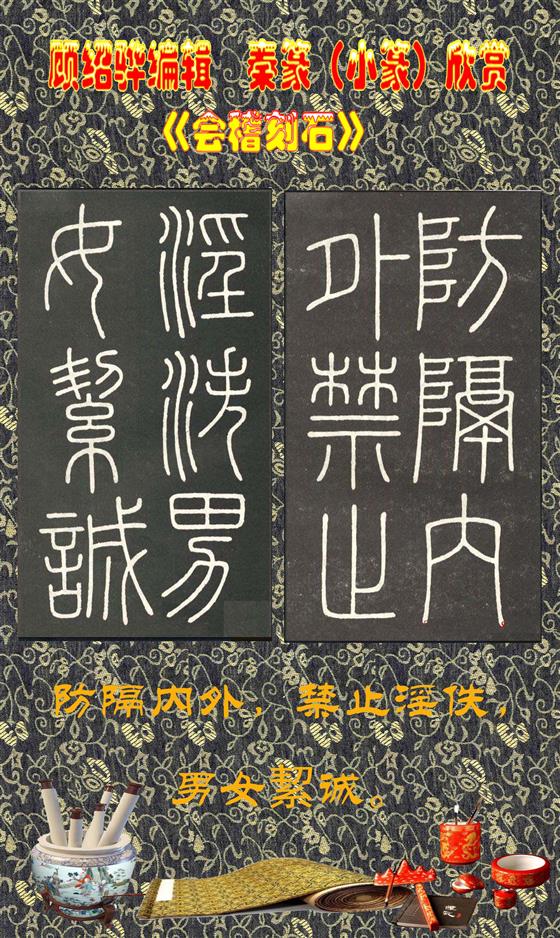 顾绍骅编辑　秦篆（小篆）欣赏
《会稽刻石》
防隔内
外禁止
淫泆男
女絜誠
防隔内外，禁止淫佚，
男女絜诚。